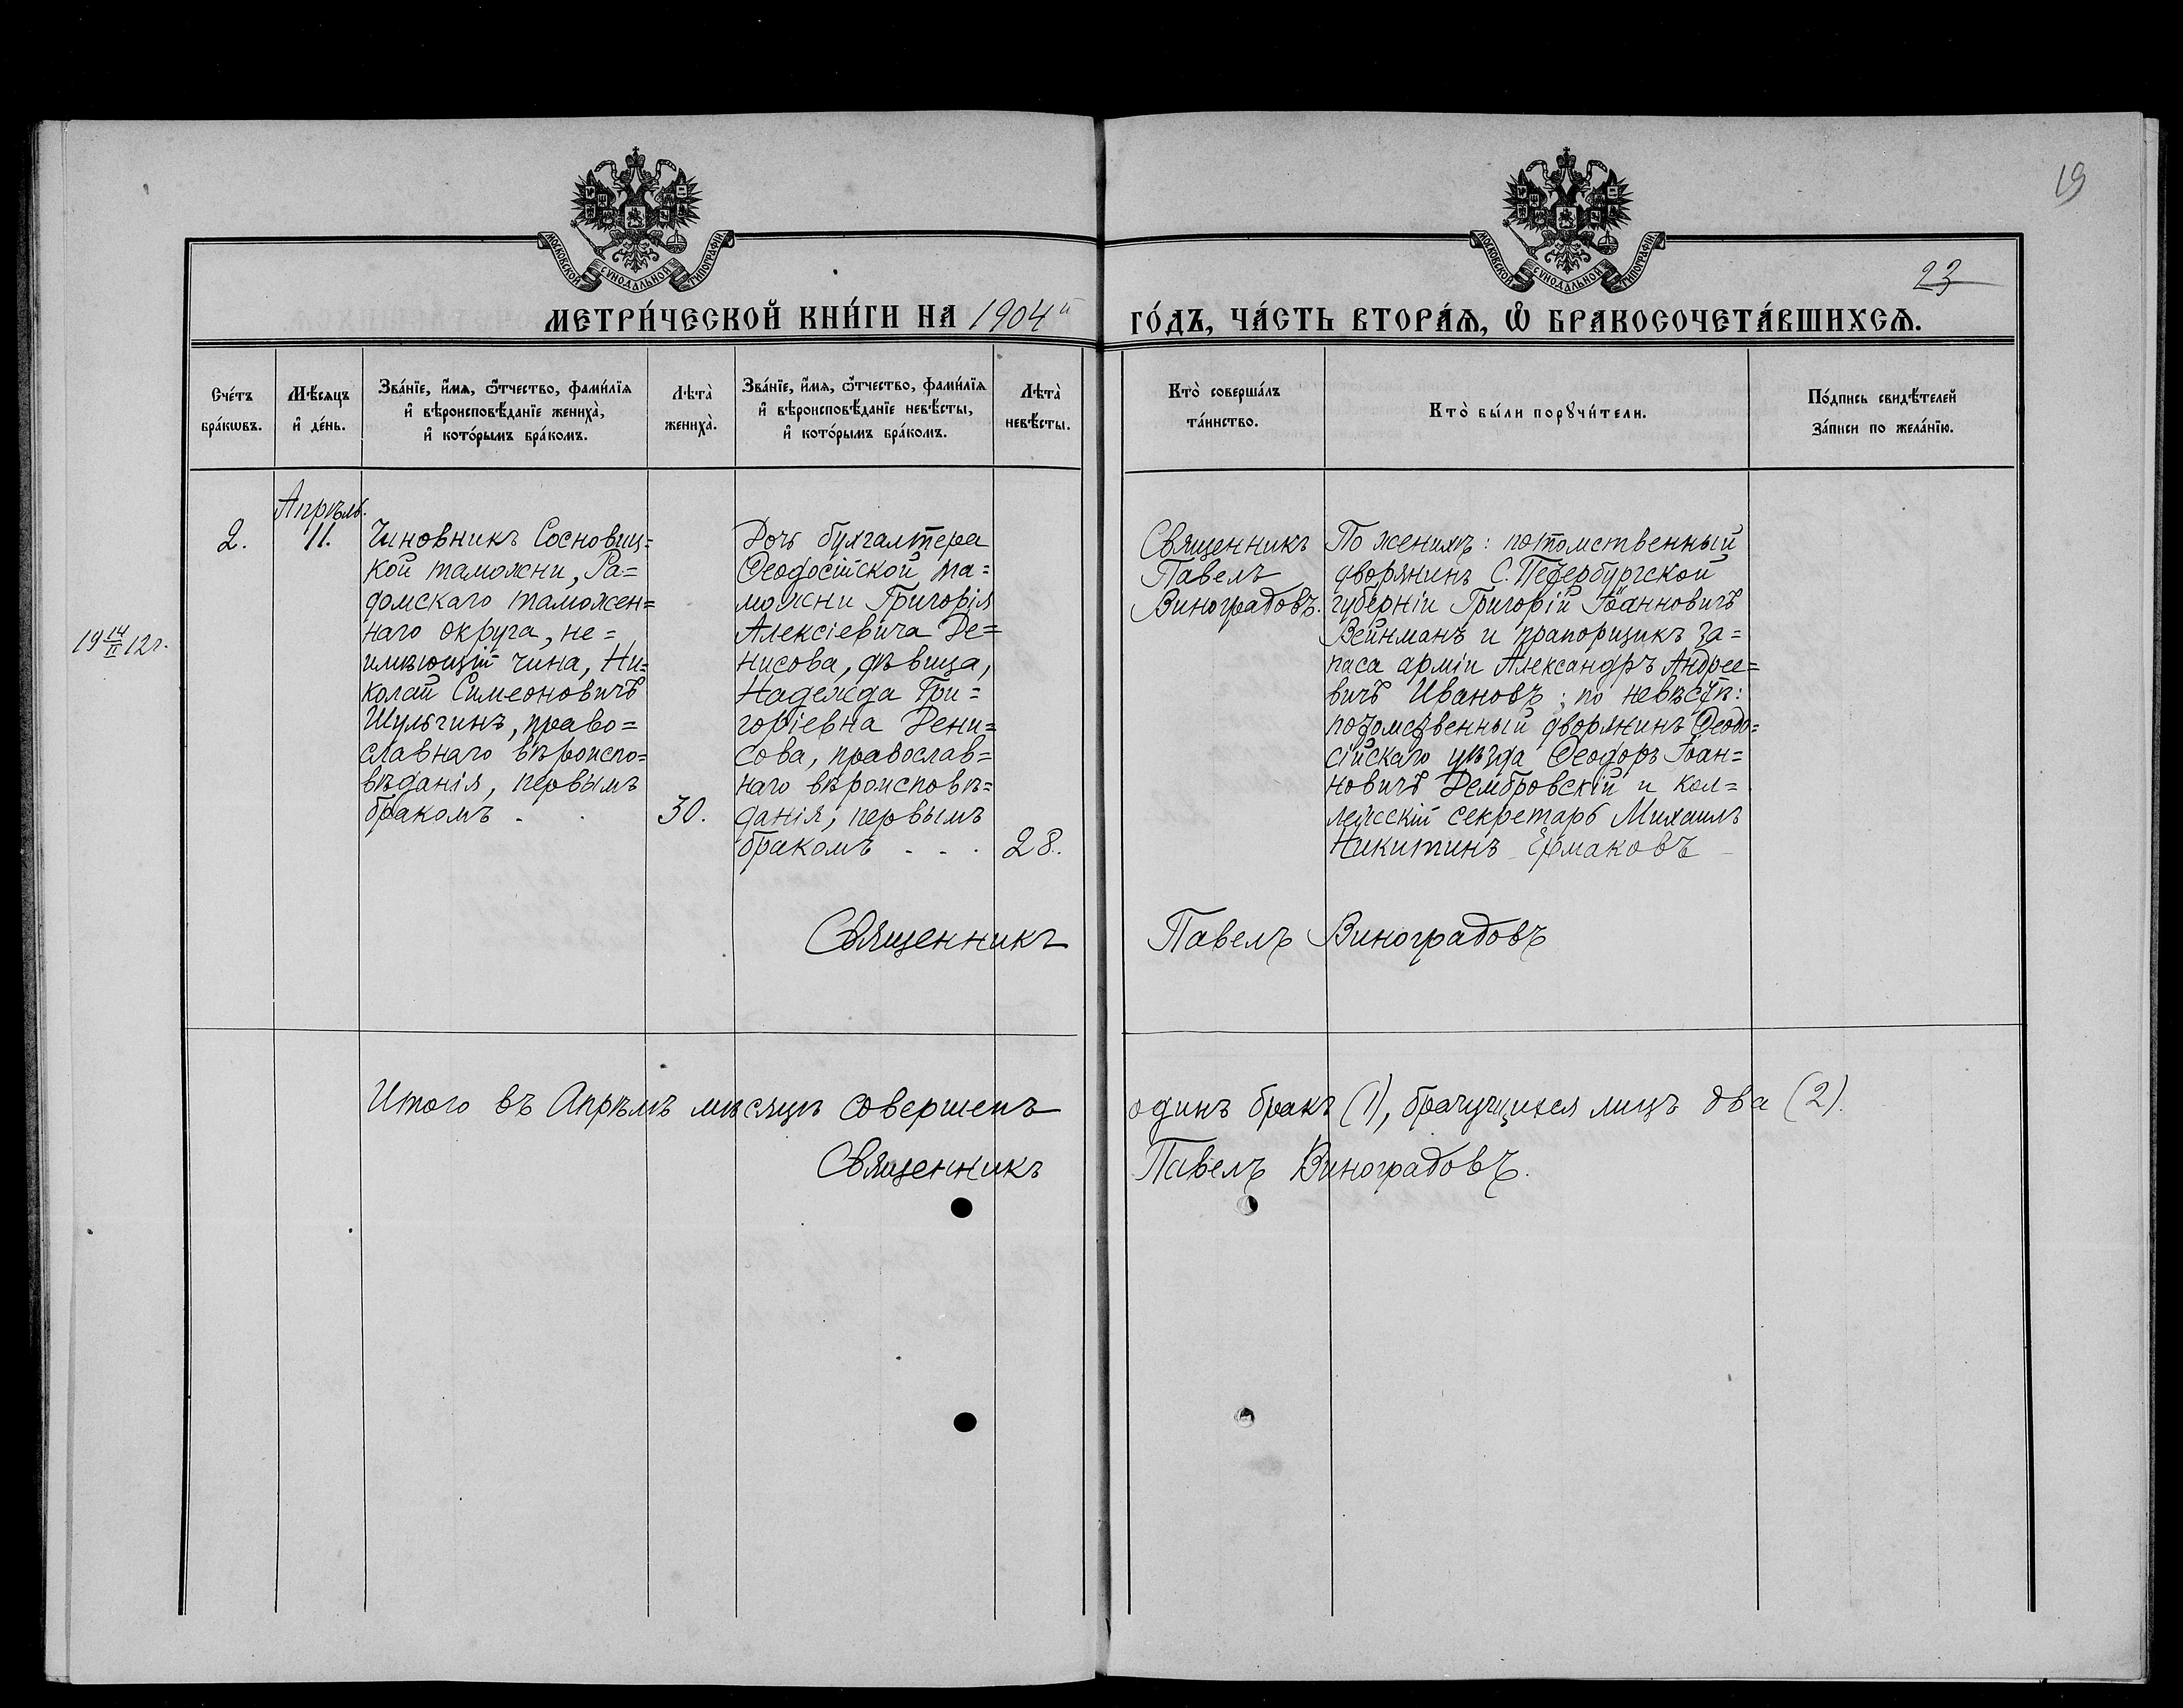 19
23
МОСКОВСКОЙ СѴНОДАЛЬНОЙ ТИПОГРАФІИ.
МОСКОВСКОЙ СѴНОДАЛЬНОЙ ТИПОГРАФІИ.
МЕТРИ́ЧЕСКОЙ КНИ́ГИ НА 1904й ГО́ДЪ, ЧА́СТЬ ВТОРА́Ѧ, Ѽ БРАКОСОЧЕТА́ВШИХСѦ.
Сче́тъ
бра́кѡвъ.
Мѣ́сяцъ
и҆ де́нь.
Зва́нїе, и҆́мя, ѻ҆́тчество, фами́лїя
и҆ вѣроисповѣ́данїе жениха̀,
и҆ кото́рымъ бра́комъ.
Лѣта̀
жениха̀.
Зва́нїе, и҆́мя, ѻ҆́тчество, фами́лїя
и҆ вѣроисповѣ́данїе невѣ́сты,
и҆ кото́рымъ бра́комъ.
Лѣта̀
невѣ́сты.
Кто̀ соверша́лъ
та́инство.
Кто̀ бы́ли порꙋчи́тели.
По́дпись свидѣ́телей
за́писи по жела́нїю.
19 14/II 12 г.
2.
Апрѣль.
11.
Чиновникъ Сосновиц=
кой таможни, Ра=
домскаго таможен=
наго округа, не=
имѣющій чина, Ни=
колай Симеоновичъ
Шульгинъ, право=
славнаго вѣроиспо=
вѣданія, первымъ
бракомъ . .
30.
Дочь бухгалтера
Ѳеодосійской та=
можни Григорія
Алексіевича Де=
нисова, дѣвица,
Надежда Гри=
горіевна Дени=
сова, православ=
наго вѣроисповѣ=
данія, первымъ
бракомъ . . .
28.
Священникъ
Павелъ
Виноградовъ.
По женихѣ: потомственный
дворянинъ С. Петербургской
губерніи Григорій Іоанновичъ
Вейнманъ и прапорщикъ за=
паса арміи Александръ Андрее=
вичъ Ивановъ; по невѣстѣ:
потомственный дворянинъ Ѳеодо=
сійскаго уѣзда Ѳеодоръ Іоан=
новичъ Дембровскій и кол=
лежскій секретарь Михаилъ
Никитинъ Ермаковъ
Священникъ Павелъ Виноградовъ
Итого въ Апрѣлѣ мѣсяцѣ совершенъ одинъ бракъ (1), брачущихся лицъ два (2).
Священникъ Павелъ Виноградовъ.